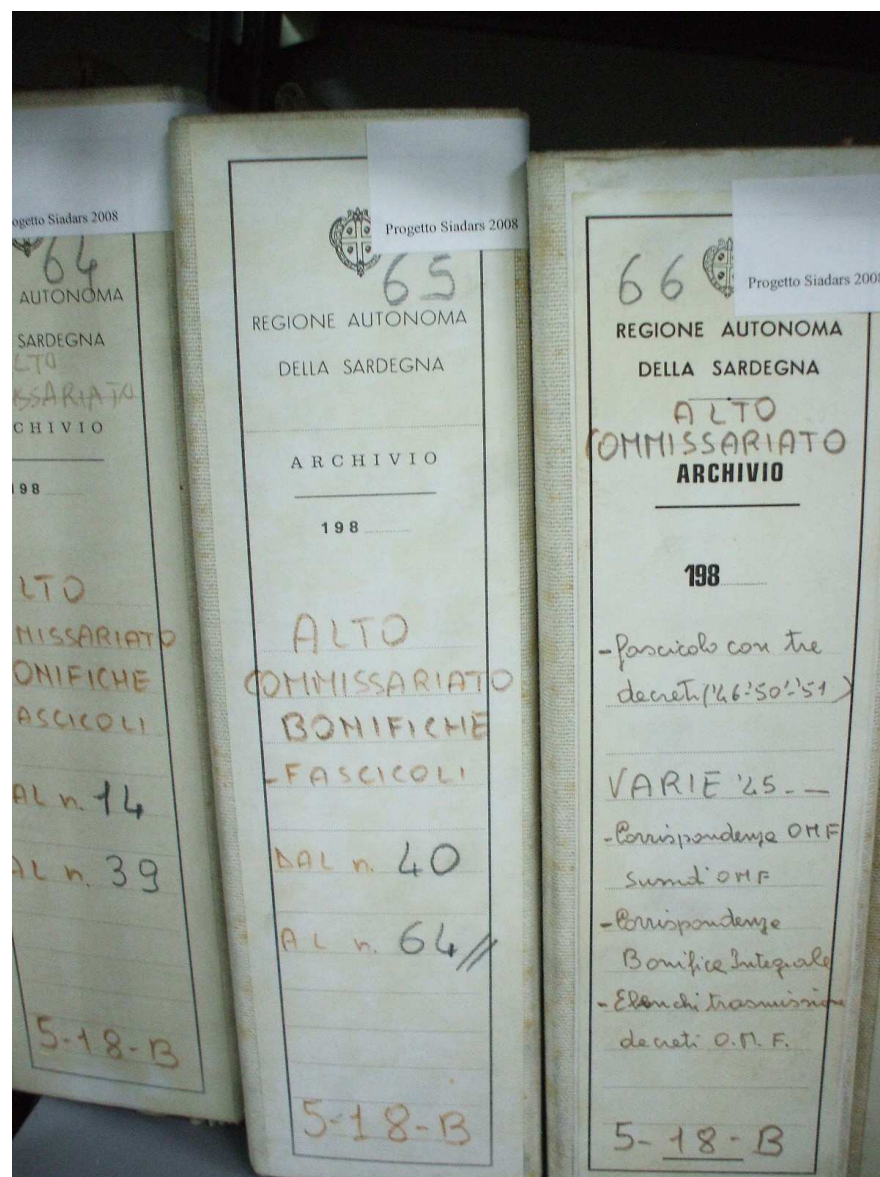 ogetto Siadars 2008
64
AUTONOMA
SARDEGNA
LTO
SSARIATO
CHIVIO
198
LTO
MISSARIATO
ONIFICHE
ASCICOLI
AL n. 14
AL n. 39
5-18-B
Progetto Siadars 2008
65
REGIONE AUTONOMA
DELLA SARDEGNA
ARCHIVIO
198
ALTO
COMMISSARIATO
BONIFICHE
-FASCICOLI
DAL n. 40
AL n. 64//
5-18-B
Progetto Siadars 2008
66
REGIONE AUTONOMA
DELLA SARDEGNA
ALTO
COMMISSARIATO
ARCHIVIO
198
-fascicolo con tre
decreti ('46-'50-'51)
VARIE '45 - —
-Corrispondenza OMF
OMF
-Corrispondenza
Bonifica Integrale
-Elenchi trasmissione
decreti O.M.F.
5-18-B